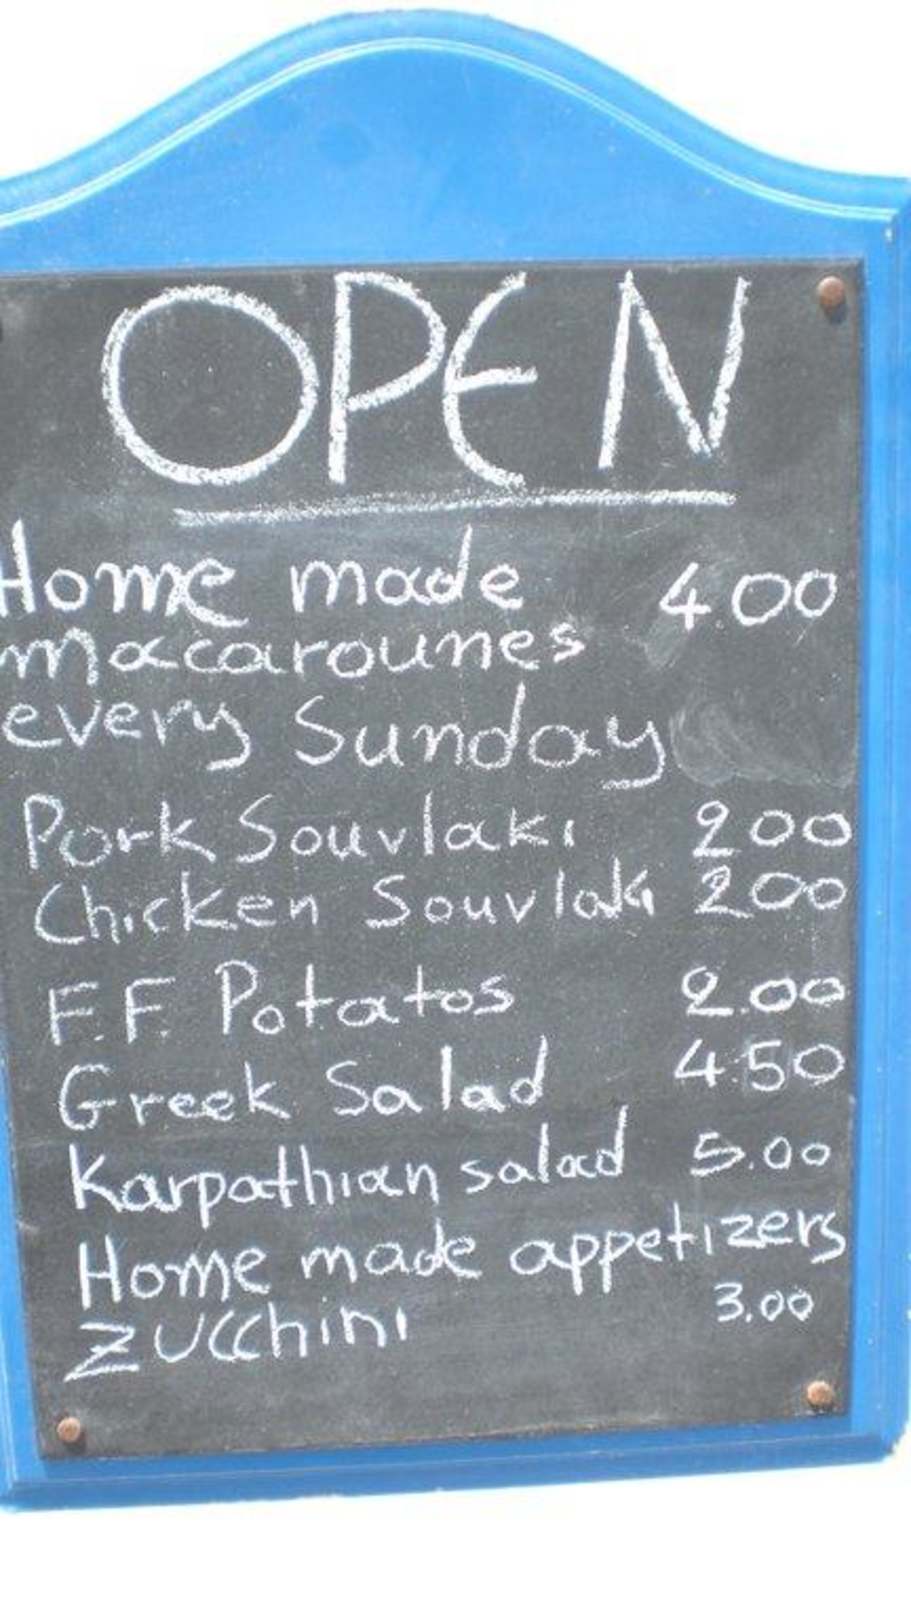 OPEN
Home made 4.00
macarounes
every Sunday
Pork Souvlaki 2.00
Chicken Souvlaki 2.00
F.F. Potatos 2.00
Greek Salad 4.50
Karpathian salad 5.00
Home made appetizers
Zucchini 3.00